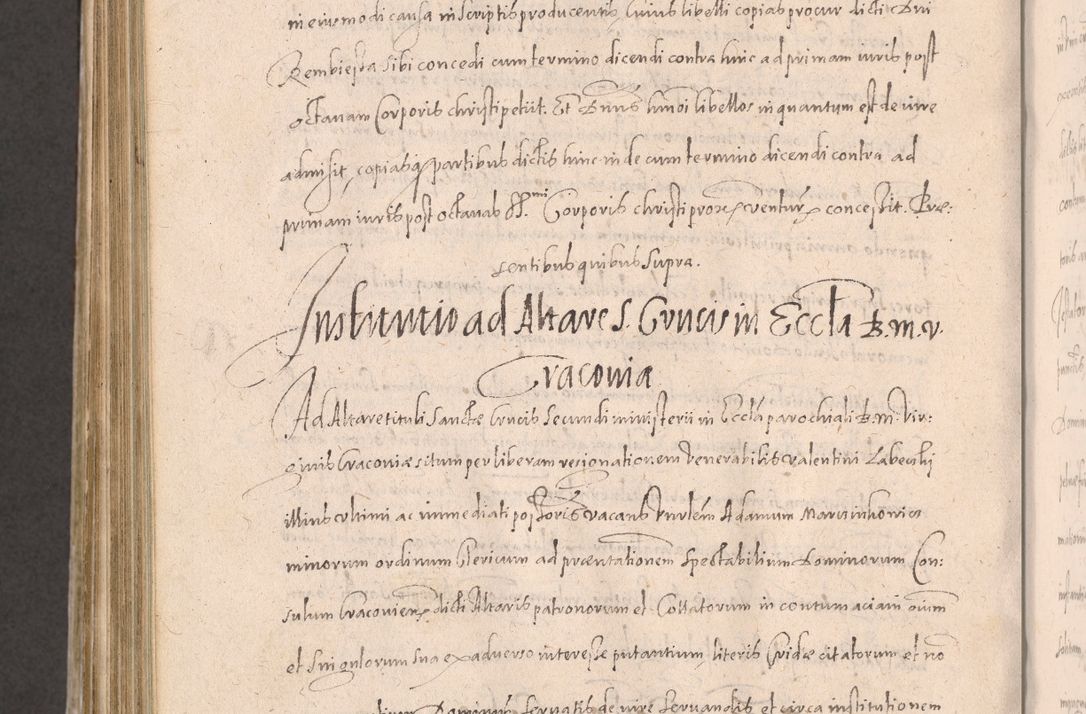 in eiusmodi causa in scriptis producentis cuius libelli copias procur dicti Dni
Rembiesza sibi concedi cum termino dicendi contra hinc ad primam iuris post
octavam Corporis christi petiit. Et Dnus hmoi libellos in quantum est de iure
admisit, copiasq partibus dictis hinc inde cum termino dicendi contra ad
primam iuris post octavas SS.mi Corporis christi prox ventur concessit. Præ:
sentibus quibus supra.
Institutio ad Altare S. Crucis in Eccla B.M.V.
Cracoviæ
Ad Altare tituli Sanctæ Crucis secundi ministerii in Eccla parochiali B.M. Vir:
ginis Cracoviæ situm per liberam resignationem Venerabilis Valentini Labecski
illius ultimi ac immediati possoris vacans Vnrlem Adamum Marcinkowicz
minorum ordinum Clericum ad præntationem Spectabilium Dominorum Con:
sulum Cracovien dicti Altaris patronorum et Collatorum in contumaciam oium
et singulorum sua ex adverso interesse putantium literis Cridæ citatorum et no
Dominus servatis de iure servandis et circa institutionem